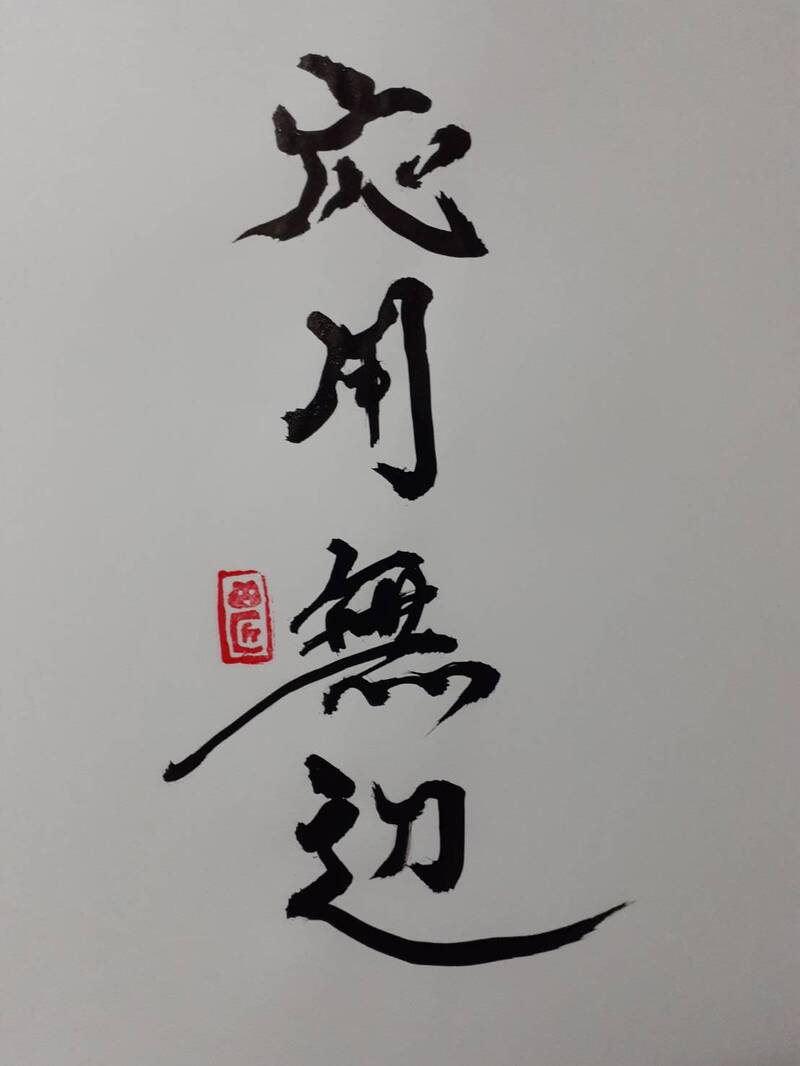 応用無辺
匠